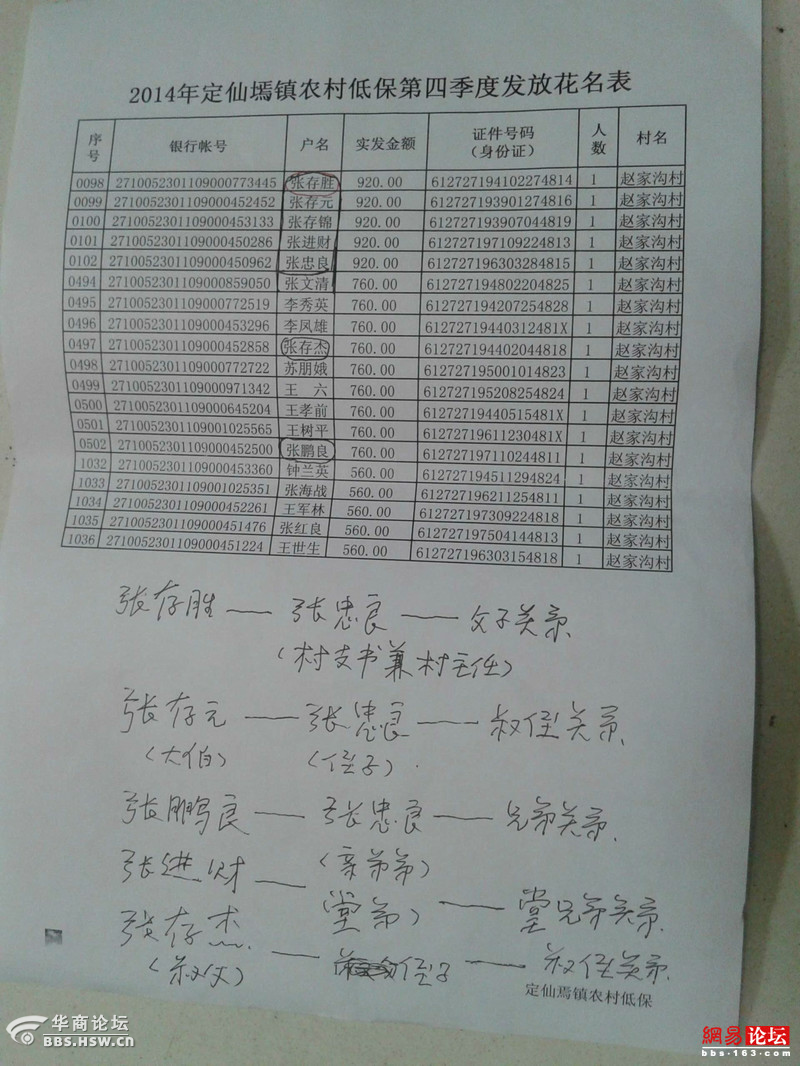 2014年定仙墕镇农村低保第四季度发放花名表
序号 银行帐号 户名 实发金额 证件号码（身份证） 人数 村名
0098 2710052301109000773445 张存胜 920.00 612727194102274814 1 赵家沟村
0099 2710052301109000452452 张存元 920.00 612727193901274816 1 赵家沟村
0100 2710052301109000453133 张存锦 920.00 612727193907044819 1 赵家沟村
0101 2710052301109000450286 张进财 920.00 612727197109224813 1 赵家沟村
0102 2710052301109000450962 张忠良 920.00 612727196303284815 1 赵家沟村
0494 2710052301109000859050 张文清 760.00 612727194802204825 1 赵家沟村
0495 2710052301109000772519 李秀英 760.00 612727194207254828 1 赵家沟村
0496 2710052301109000453296 李凤雄 760.00 61272719440312481X 1 赵家沟村
0497 2710052301109000452858 张存杰 760.00 612727194402044818 1 赵家沟村
0498 2710052301109000772722 苏朋娥 760.00 612727195001014823 1 赵家沟村
0499 2710052301109000971342 王 六 760.00 612727195208254824 1 赵家沟村
0500 2710052301109000645204 王孝前 760.00 61272719440515481X 1 赵家沟村
0501 2710052301109001025565 王树平 760.00 61272719611230481X 1 赵家沟村
0502 2710052301109000452500 张鹏良 760.00 612727197110244811 1 赵家沟村
1032 2710052301109000453360 钟兰英 560.00 612727194511294824 1 赵家沟村
1033 2710052301109001025351 张海战 560.00 612727196211254811 1 赵家沟村
1034 2710052301109000452261 王军林 560.00 612727197309224818 1 赵家沟村
1035 2710052301109000451476 张红良 560.00 612727197504144813 1 赵家沟村
1036 2710052301109000451224 王世生 560.00 612727196303154818 1 赵家沟村
张存胜——张忠良——父子关系
（村支书兼村主任）
张存元——张忠良——叔侄关系
（大伯） （侄子）
张鹏良——张忠良——兄弟关系
（亲弟弟）
张进财——（堂弟）——堂兄弟关系
张存杰——侄子——叔侄关系
（叔父）
定仙墕镇农村低保
华商论坛
BBS.HSW.CN
网易论坛
bbs·163.com